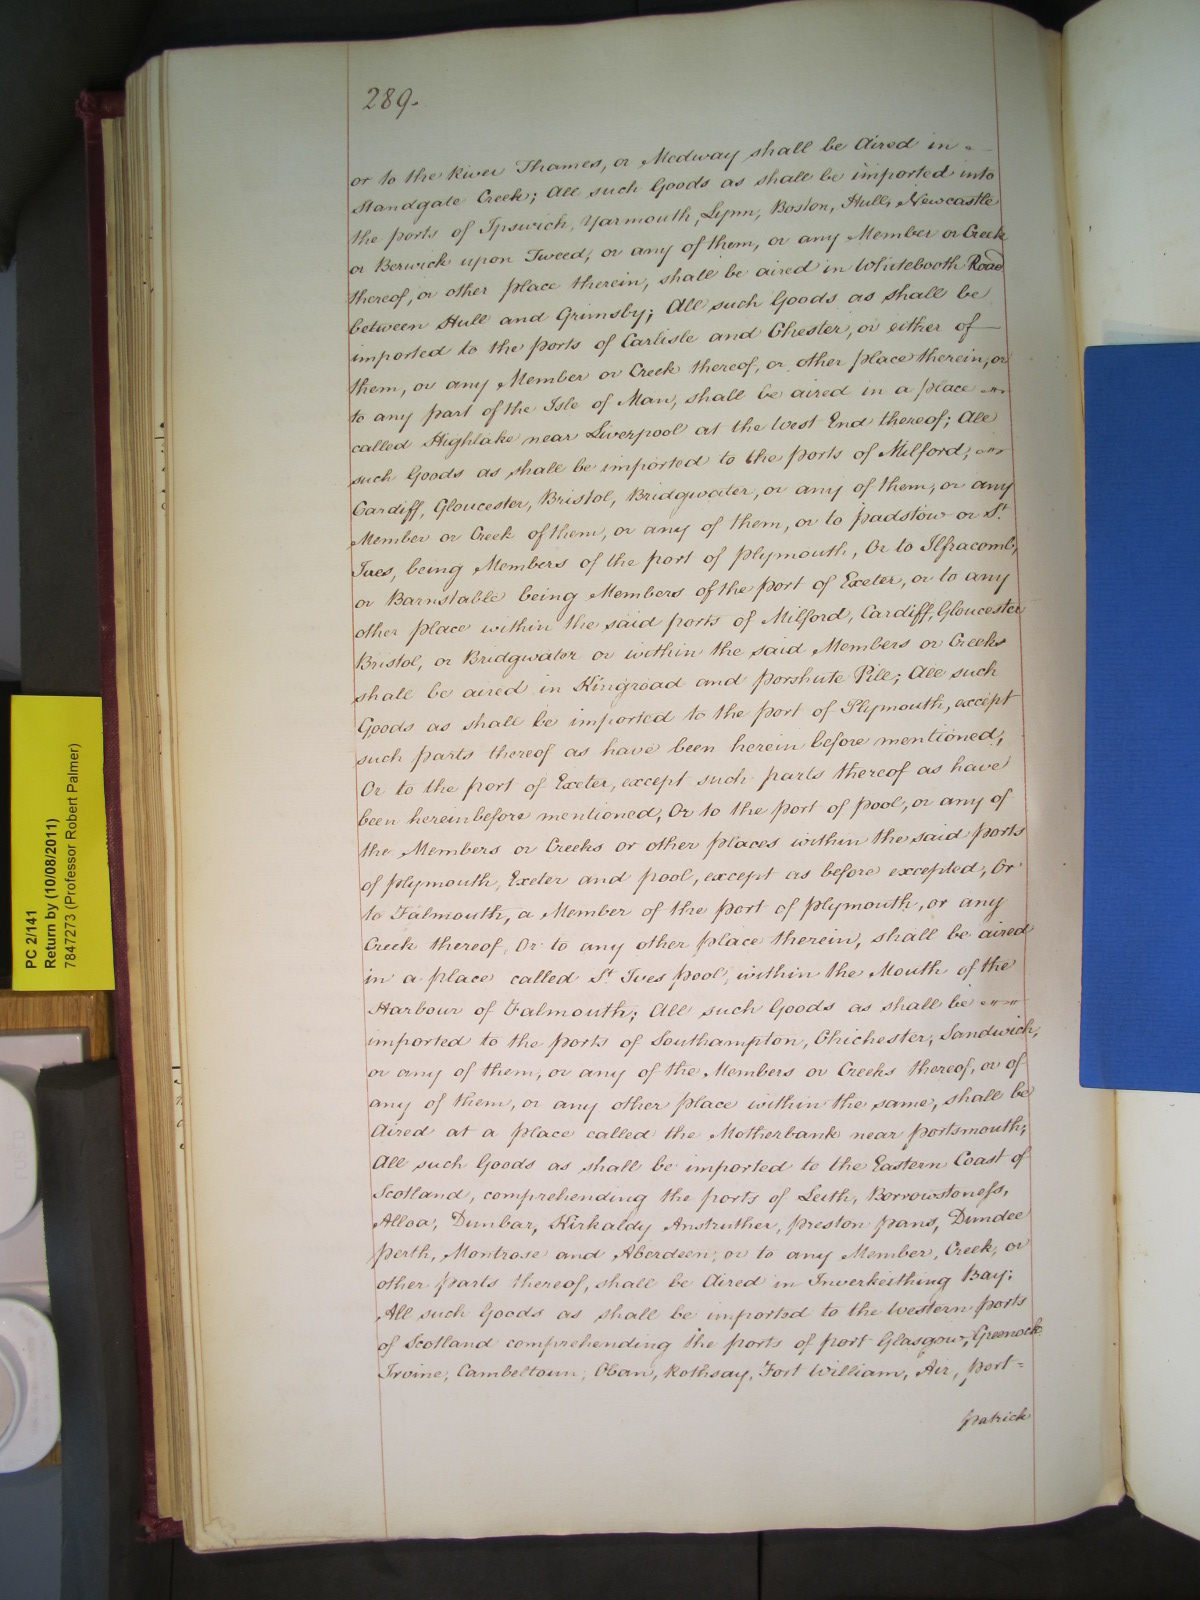 289.
or to the River Thames, or Medway shall be Aired in
Standgate Creek; All such Goods as shall be imported into
the ports of Ipswich, Yarmouth, Lynn, Boston, Hull, Newcastle
or Berwick upon Tweed, or any of them, or any Member or Creek
thereof, or other place therein, shall be aired in Whitebooth Road
between Hull and Grimsby; All such Goods as shall be
imported to the ports of Carlisle and Chester, or either of
them, or any Member or Creek thereof, or other place therein, or
to any part of the Isle of Man, shall be aired in a place
called Highlake near Liverpool at the West End thereof; All
such Goods as shall be imported to the ports of Milford,
Cardiff, Gloucester, Bristol, Bridgwater, or any of them, or any
Member or Creek of them, or any of them, or to padstow or St.
Ives, being Members of the port of plymouth, Or to Ilfracomb,
or Barnstable being Members of the port of Exeter, or to any
other place within the said ports of Milford, Cardiff, Gloucester
Bristol, or Bridgwater or within the said Members or Creeks
shall be aired in Kingroad and porshute Pill; All such
Goods as shall be imported to the port of Plymouth, except
such parts thereof as have been herein before mentioned,
Or to the port of Exeter, except such parts thereof as have
been hereinbefore mentioned, Or to the port of pool, or any of
the Members or Creeks or other places within the said ports
of plymouth, Exeter and pool, except as before excepted, Or
to Falmouth, a Member of the port of plymouth, or any
Creek thereof, Or to any other place therein, shall be aired
in a place called St. Ives pool, within the Mouth of the
Harbour of Falmouth; All such Goods as shall be
imported to the ports of Southampton, Chichester, Sandwich,
or any of them, or any of the Members or Creeks thereof, or of
any of them, or any other place within the same, shall be
Aired at a place called the Motherbank near portsmouth;
All such Goods as shall be imported to the Eastern Coast of
Scotland, comprehending the ports of Leith, Borrowstoness,
Alloa, Dunbar, Kirkaldy Anstruther, preston pans, Dundee
perth, Montrose and Aberdeen, or to any Member, Creek, or
other parts thereof, shall be Aired in Inverkeithing Bay;
All such Goods as shall be imported to the Western ports
of Scotland comprehending the ports of port Glasgow, Greenock
Irvine, Cambeltoun, Oban, Rothsay, Fort William, Air, port=
patrick
PC 2/141
Return by (10/08/2011)
7847273 (Professor Robert Palmer)